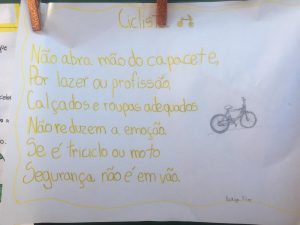 Ciclista
Não abra mão do capacete,
Por lazer ou profissão,
Calçados e roupas adequados
Não reduzem a emoção.
Se é triciclo ou moto
Segurança não é em vão.